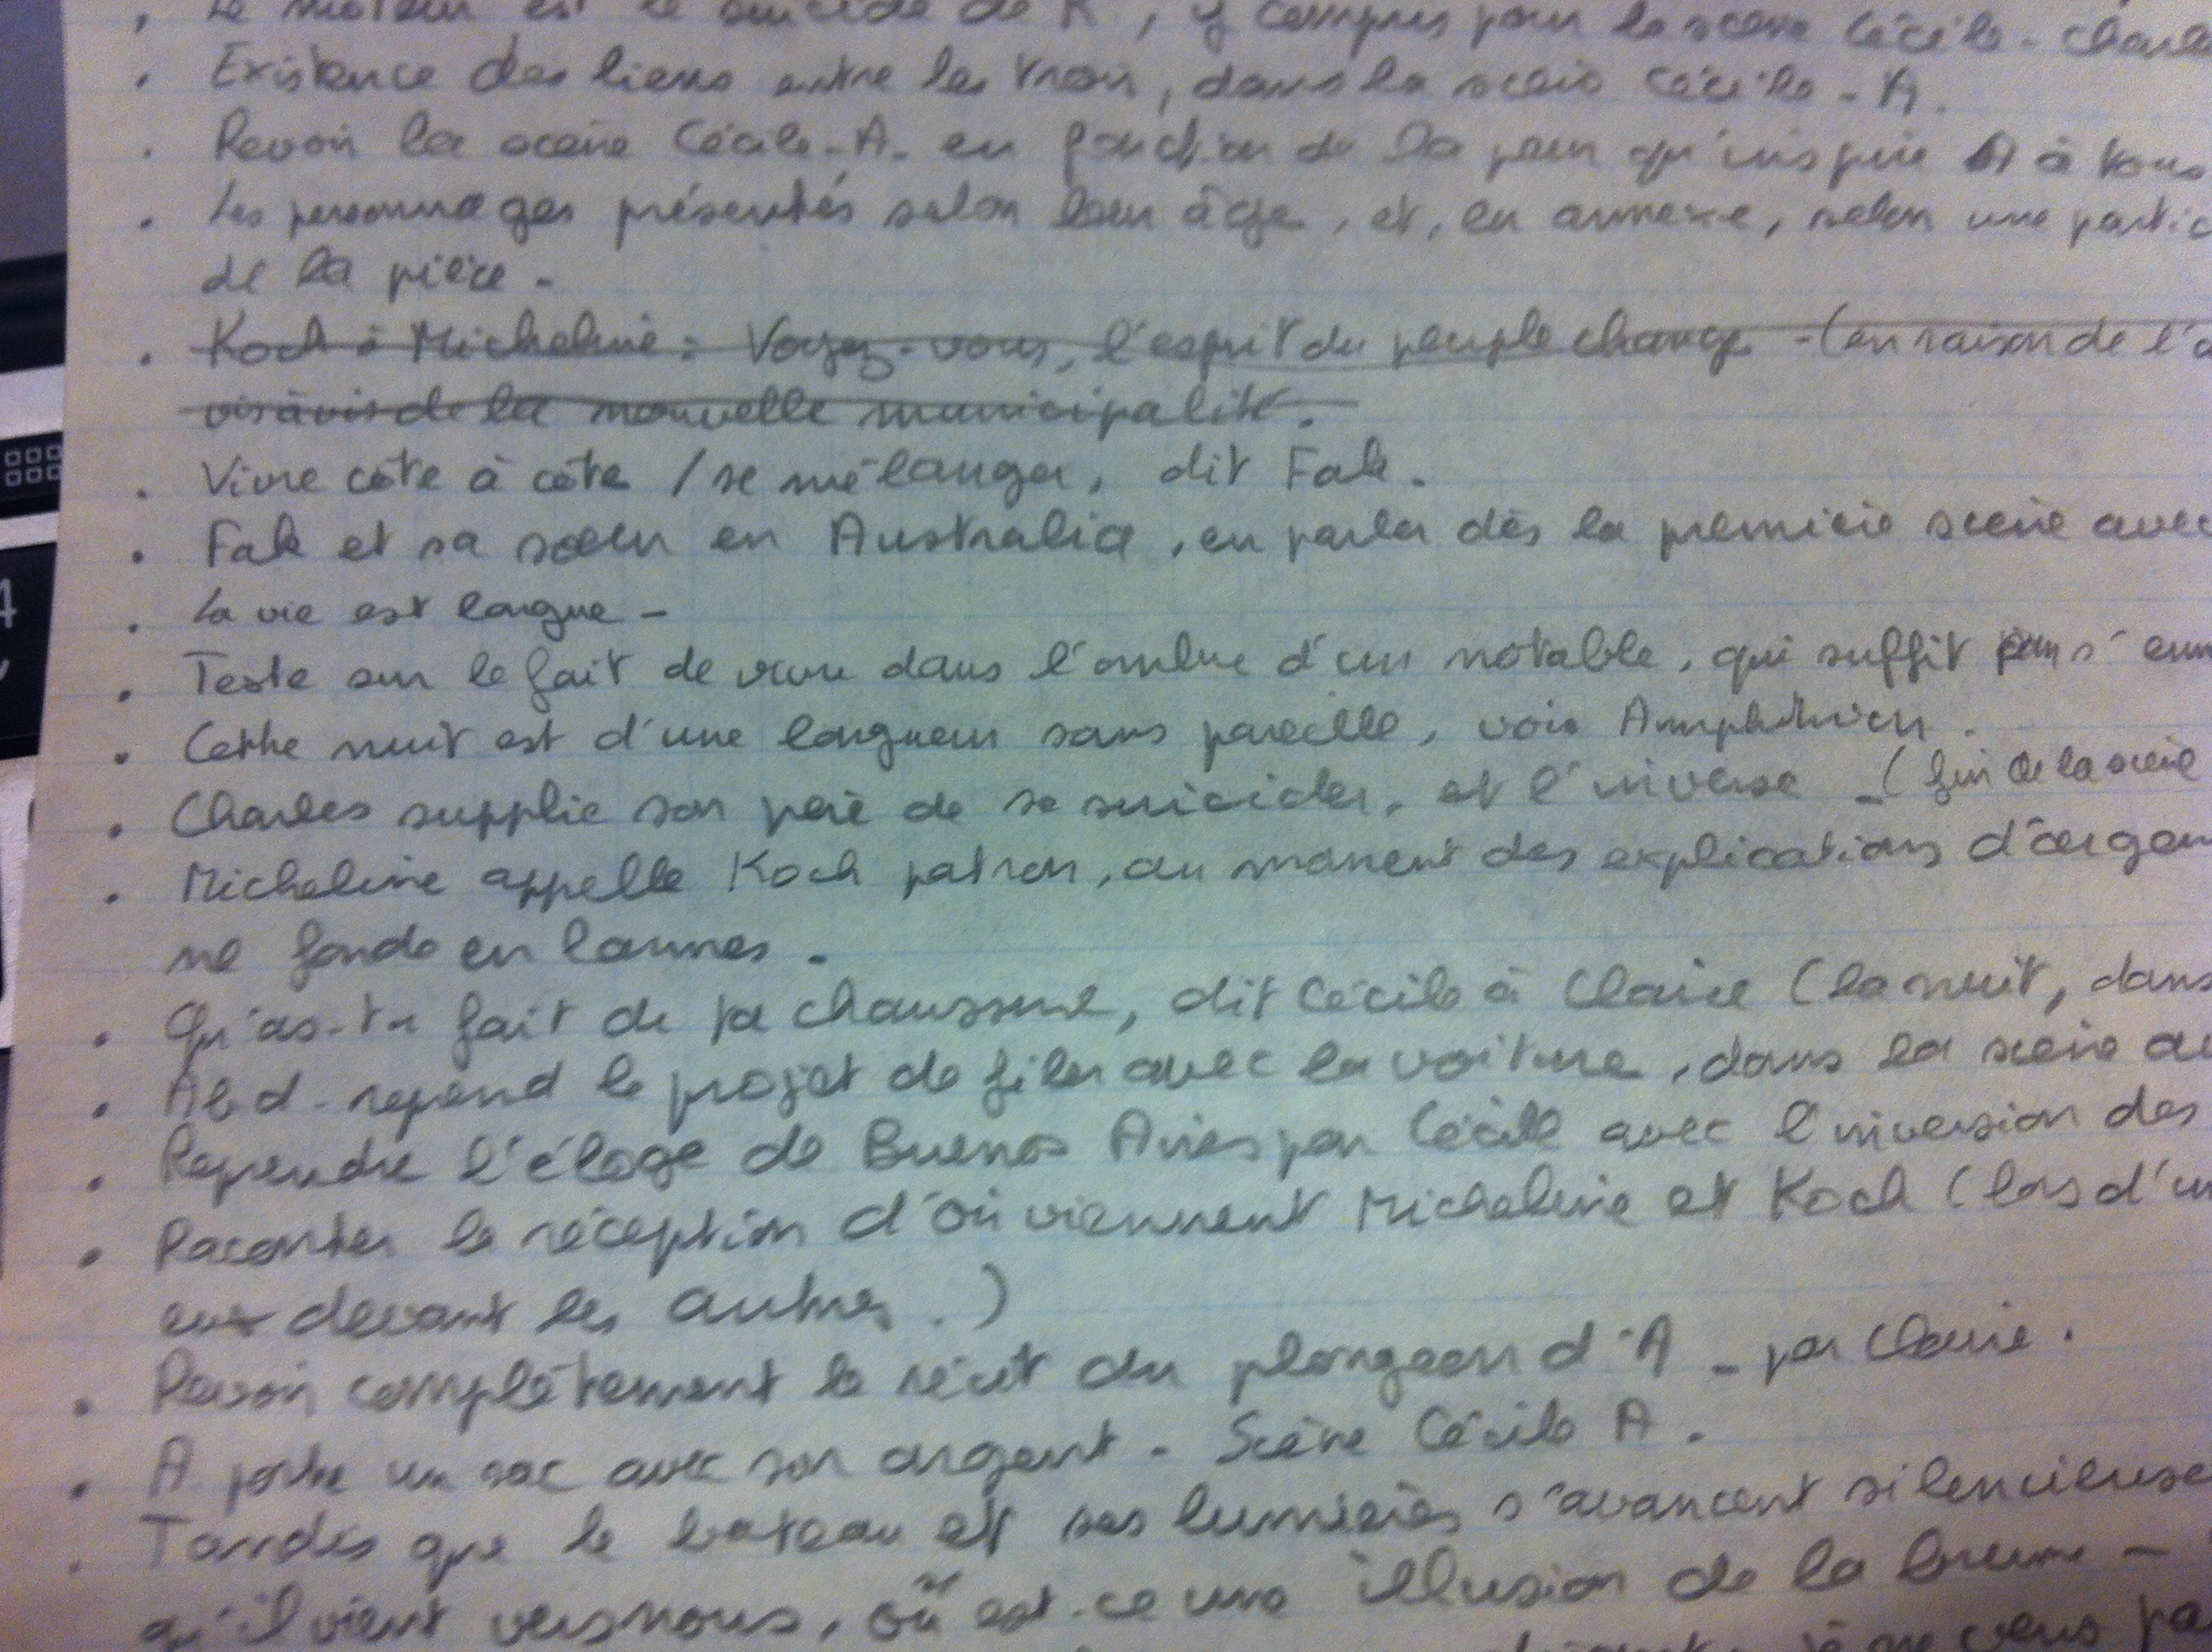 . Le moteur est le suicide de K, y compris pour la scène Cécile - Charle
. Existence des liens entre les trois, dans la scène Cécile - A.
. Revoir la scène Cécile - A. en fonction de la peur qu'inspire A à tous
. Les personnages présentés selon leur âge, et, en annexe, selon une partic
de la pièce -
. Koch à Micheline : Voyez-vous, l'esprit du peuple change - (en raison de l'a
vis à vis de la nouvelle municipalité.
. Vivre côte à côte / se mélanger, dit Fak.
. Fak et sa soeur en Australie, en parler dès la première scène avec
. La vie est longue -
. Texte sur le fait de vivre dans l'ombre d'un notable, qui suffit s'enn
. Cette nuit est d'une longueur sans pareille, voir Amphitryon.
. Charles supplie son père de se suicider, et l'inverse - (fin de la scène
. Micheline appelle Koch patron, au moment des explications d'argen
ne fonde en larmes.
. Qu'as-tu fait de ta chaussure, dit Cécile à Claire (la nuit, dans
. Abd. reprend le projet de filer avec la voiture, dans la scène
. Reprendre l'éloge de Buenos Aires par Cécile avec l'inversion des
. Raconter la réception d'où viennent Micheline et Koch (lors d'un
eux devant les autres.)
. Revoir complètement le récit du plongeon d'A - par Claire.
. A porte un sac avec son argent. Scène Cécile A.
. Tandis que le bateau et ses lumières s'avancent silencieuse
qu'il vient vers nous, où est-ce une illusion de la brume -
je ne veux pa